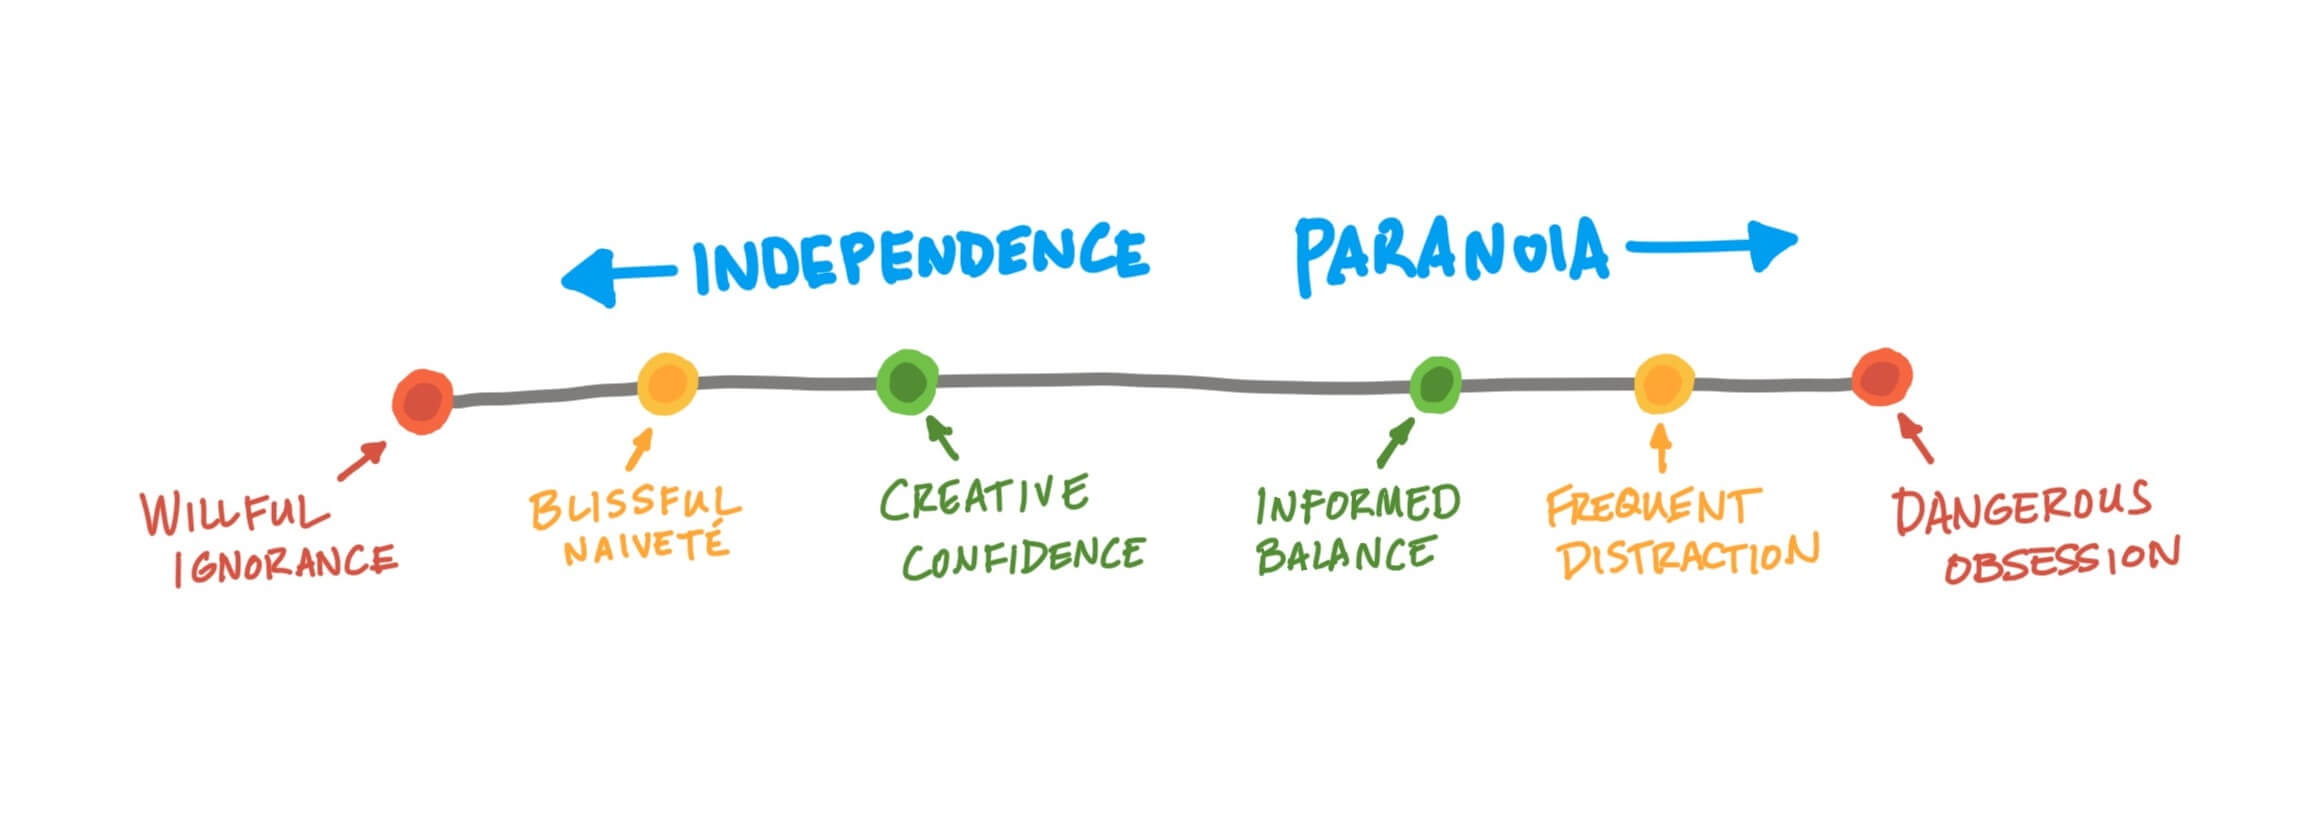 INDEPENDENCE
PARANOIA
WILLFUL
IGNORANCE
BLISSFUL
NAIVETÉ
CREATIVE
CONFIDENCE
INFORMED
BALANCE
FREQUENT
DISTRACTION
DANGEROUS
OBSESSION